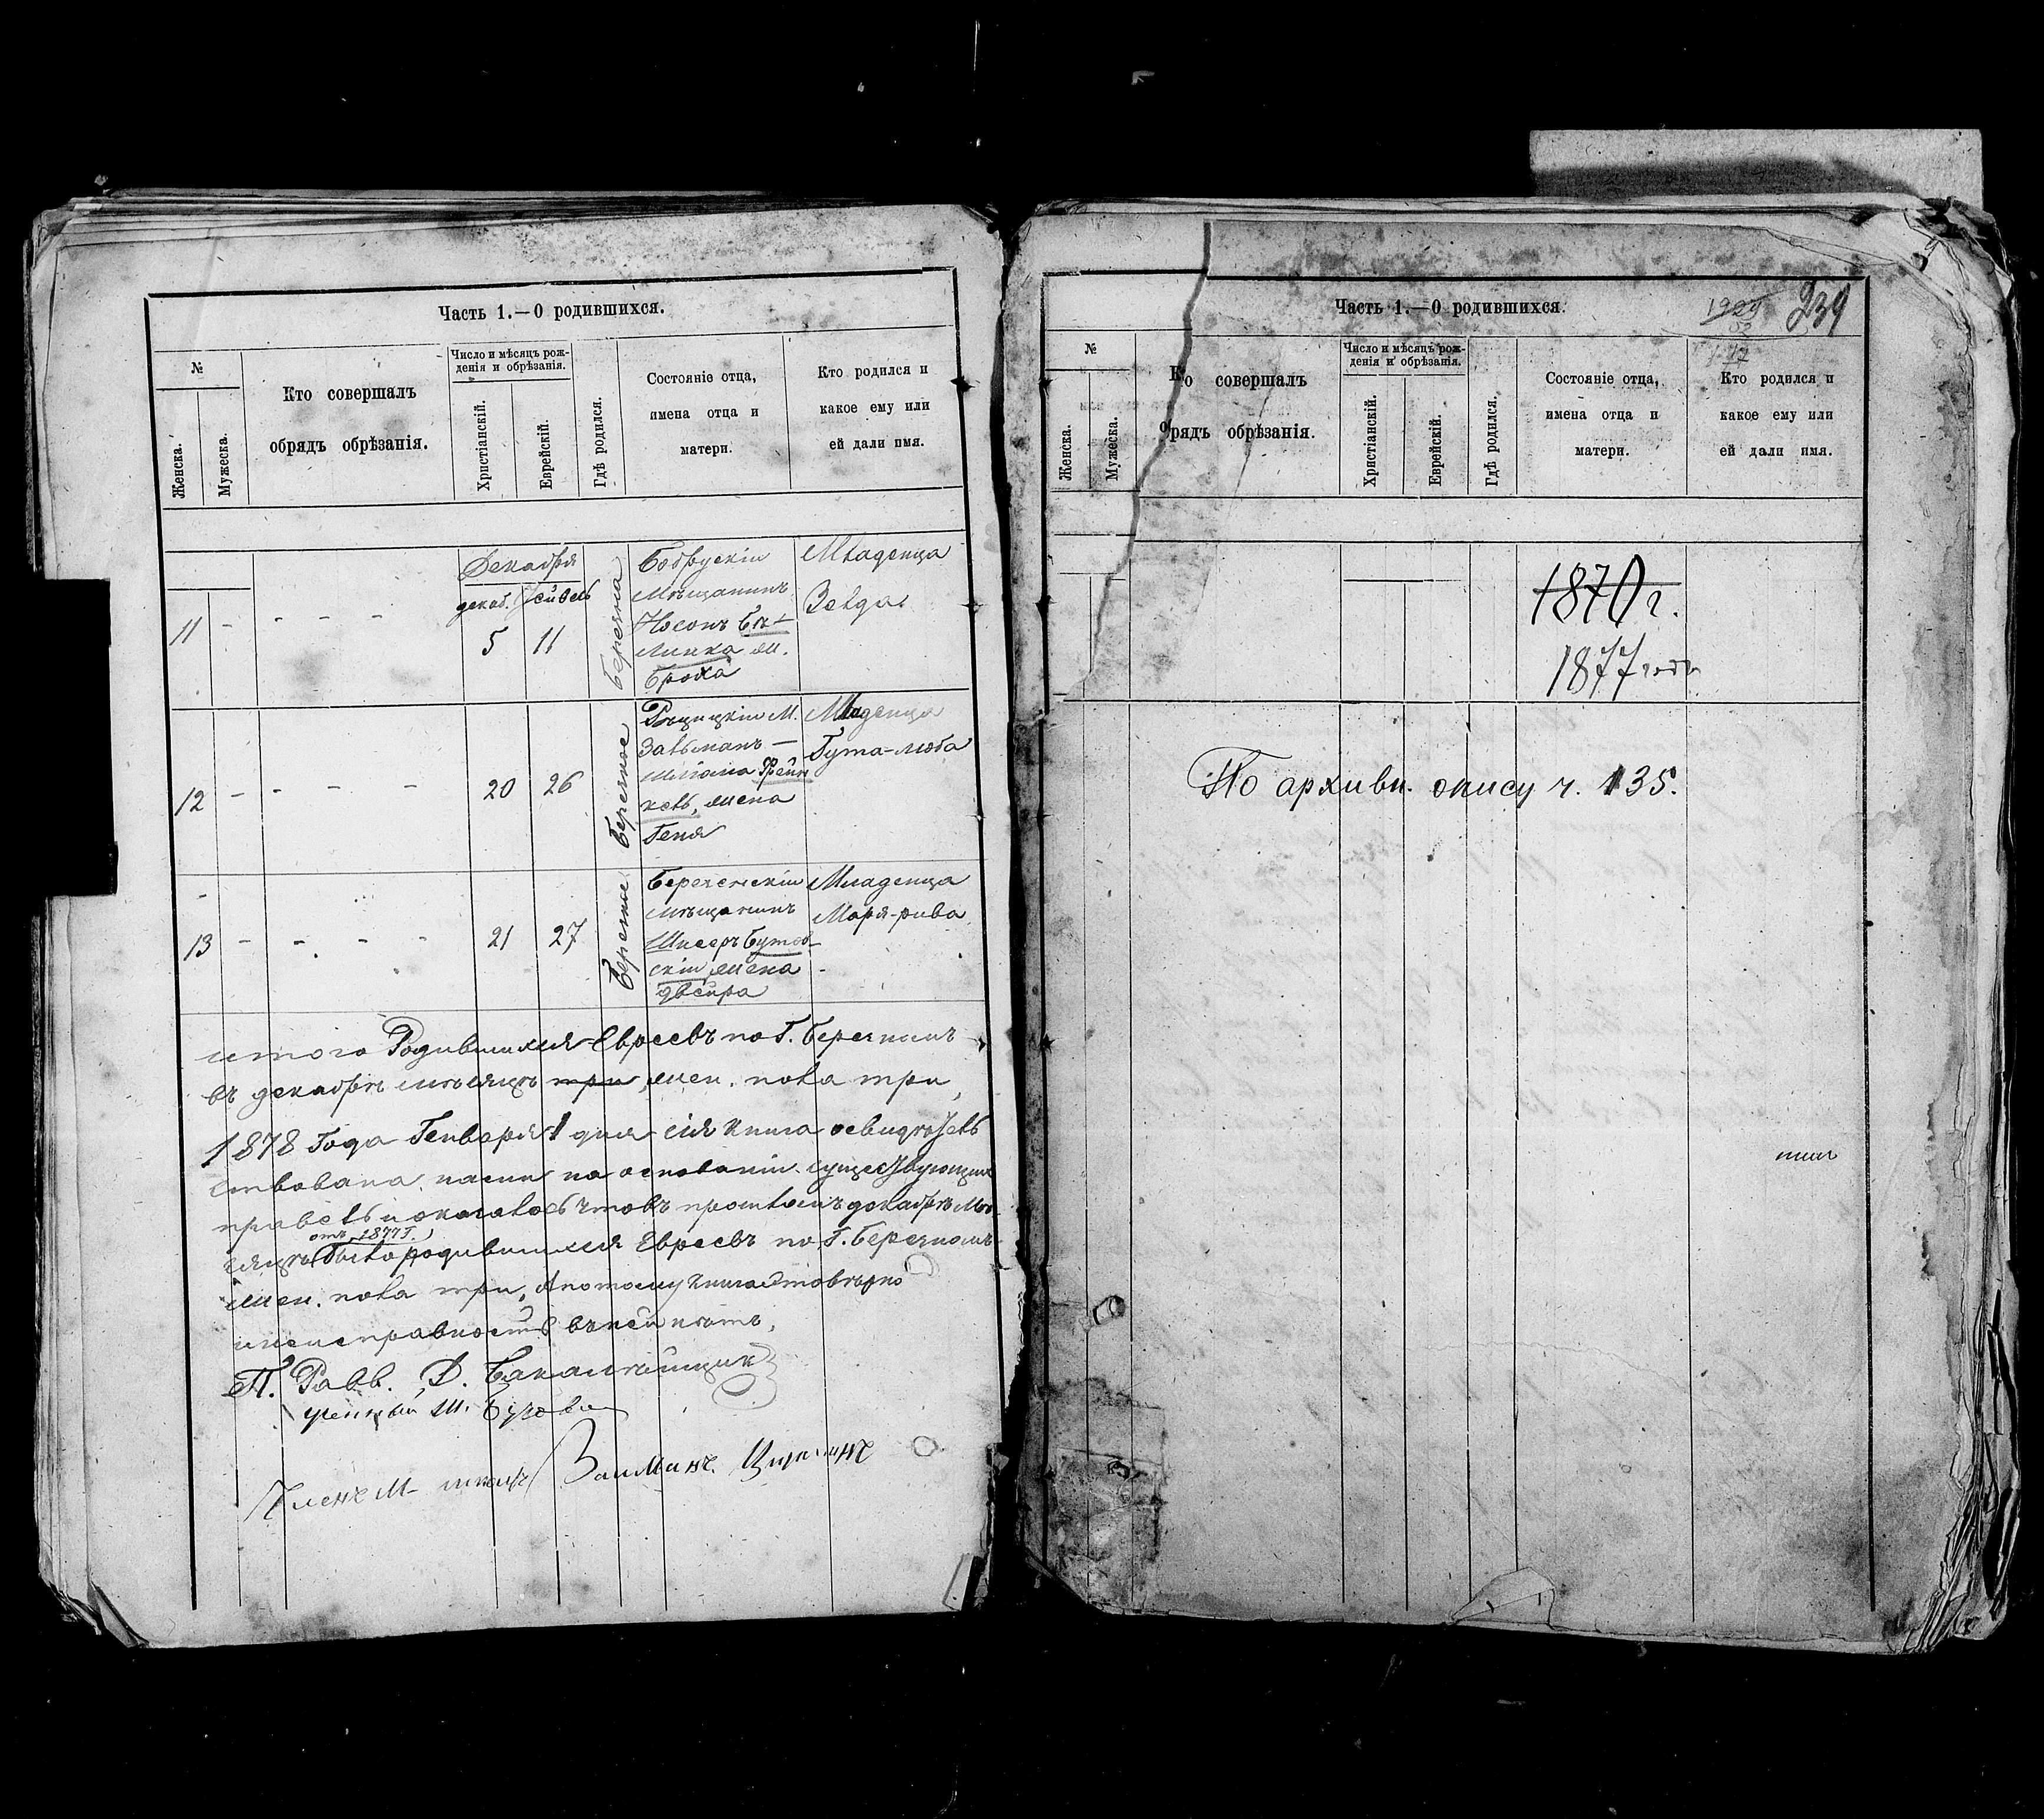 Часть 1.—О родившихся.
№
Женска.
Мужеска.
Кто совершалъ
обрядъ обрѣзанія.
Число и мѣсяцъ рож-
денія и обрѣзанія.
Христіанскій.
Еврейскій.
Гдѣ родился.
Состояніе отца,
имена отца и
матери.
Кто родился и
какое ему или
ей дали имя.
Декабря
декаб.
11 - - - - -
5 11
Березна
Бобрускій
мѣщанинъ
Носонъ
ж.
Броха
Младенца
Зелда
12 - - - - -
20 26
Березное
Рѣчицкій М.
Залманъ —
жена
Геня
Младенца
Гута-люба
13 - - - -
21 27
Березное
Березенскій
мѣщанинъ
Бутов-
скій жена
двейра
Младенца
Маря-рива
итого Родившихся Евреевъ по Г. Березномъ
въ декабрѣ мѣсяцѣ три, жен. пола три,
1878 Года Генваря 1 дня сія книга освидѣтель
ствована нами на основаніи существующихъ
правилъ и оказалось что въ прошломъ декабрѣ мѣ-
отъ 1877 Г.
сяцѣ было родившихся Евреевъ по Г. Березномъ
жен. пола три, А потому книга
неисправность въ ней нѣтъ,
П. Равв. Д.
ученый Ш.
Членъ М-
Часть 1.—О родившихся.
239
№
Женска.
Мужеска.
Кто совершалъ
обрядъ обрѣзанія.
Число и мѣсяцъ рож-
денія и обрѣзанія.
Христіанскій.
Еврейскій.
Гдѣ родился.
Состояніе отца,
имена отца и
матери.
Кто родился и
какое ему или
ей дали имя.
1870 г.
1877 годъ
По архивн. опису ч. 135.